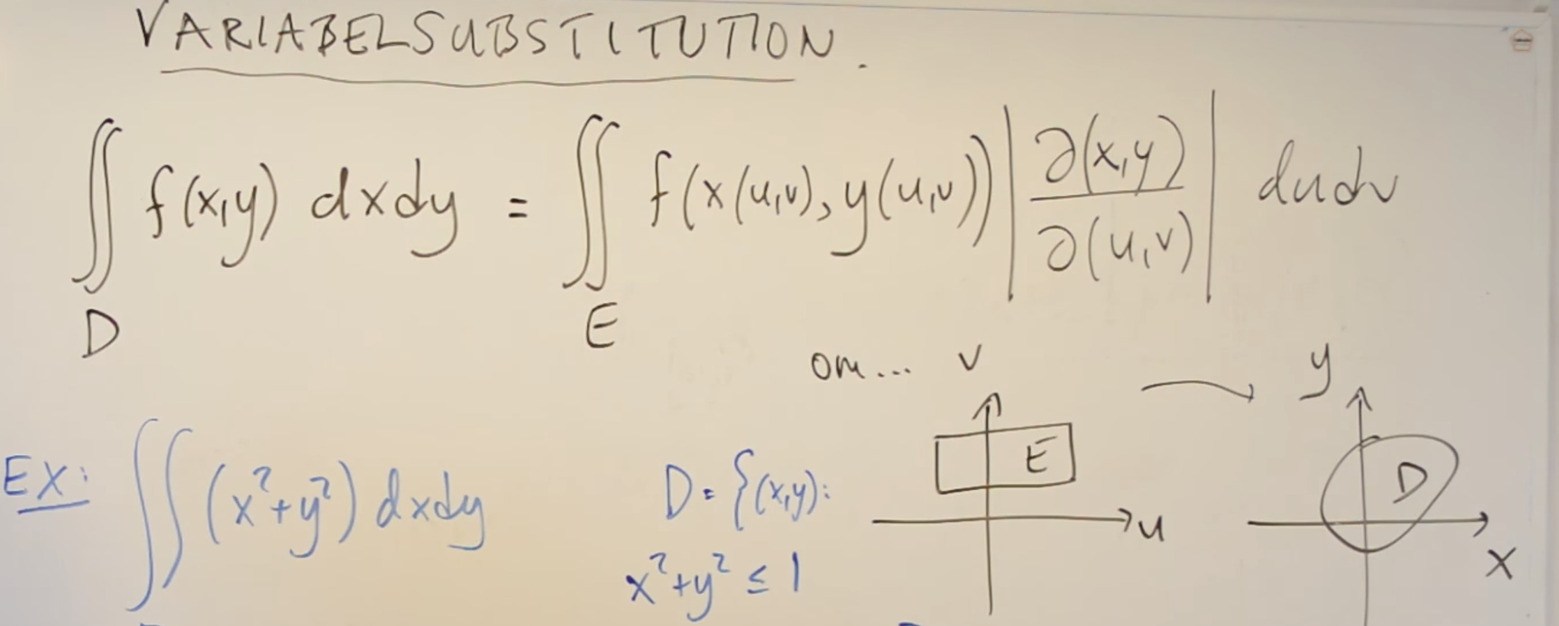 VARIABELSUBSTITUTION.
∬ f(x,y) dxdy = ∬ f(x(u,v), y(u,v)) | ∂(x,y) / ∂(u,v) | dudv
D E
om... v y
E D
u x
EX: ∬ (x²+y²) dxdy D = {(x,y):
x²+y² ≤ 1